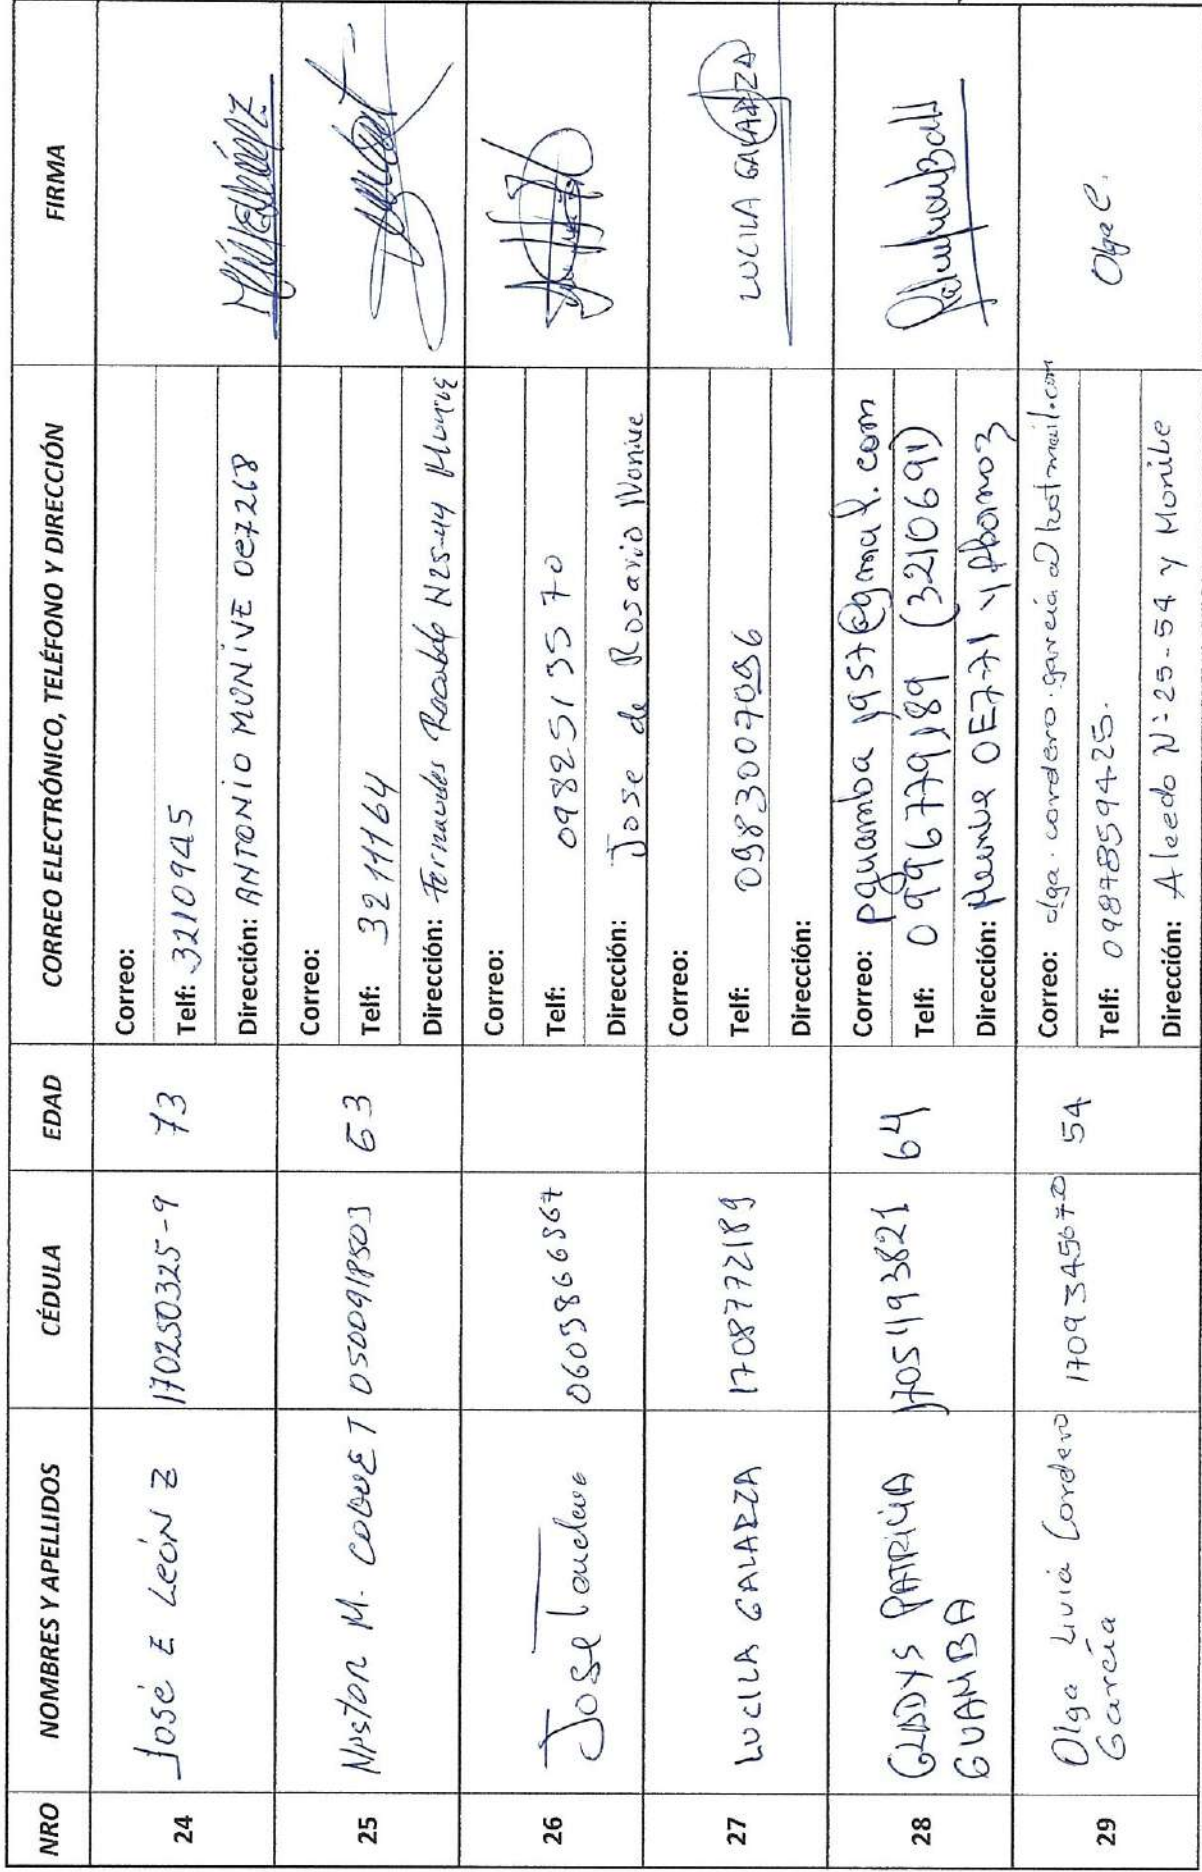 NRO NOMBRES Y APELLIDOS CÉDULA EDAD CORREO ELECTRÓNICO, TELÉFONO Y DIRECCIÓN FIRMA
24 José E León Z 170250325-9 73
Correo:
Telf: 3210945
Dirección: ANTONIO MUNIVE Oe7268
25 Nestor M. 0500918503 63
Correo:
Telf: 3211164
Dirección: Fernandes N25-44
26 Jose 0603866567
Correo:
Telf: 0982513570
Dirección: Jose de Rosario
27 LUCILA GALARZA 1708772189
Correo:
Telf: 0983007096
Dirección:
LUCILA GALARZA
28 GLADYS PATRICIA
GUAMBA
1705493821 64
Correo: pguamba1957@gmail.com
Telf: 0996779189 (3210691)
Dirección: OE7-71 y
29 Olga Livia Cordero
García
1709345670 54
Correo: olga.cordero.garcia@hotmail.com
Telf: 0987859425.
Dirección: N° 25-54 y Monibe
Olga C.